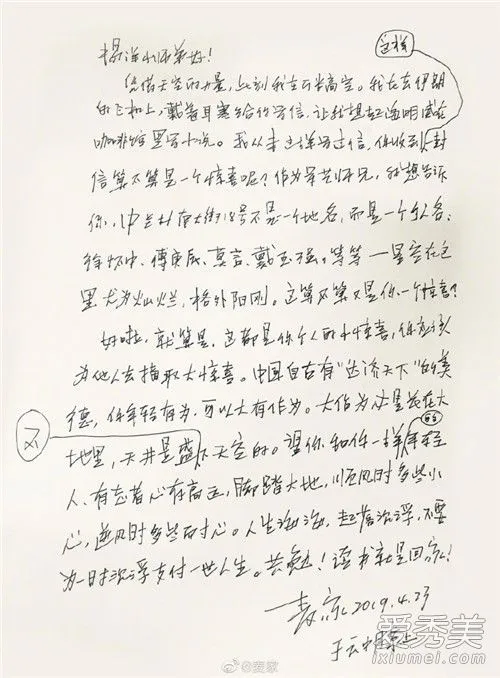 杨洋小师弟好！
这样
凭借天空的力量，此刻我在万米高空。我在去伊朗
的飞机上，戴着耳塞给你写信，让我想起海明威在
咖啡馆里写小说。我从未这样写过信，你收到一封
信算不算是一个惊喜呢？作为军艺师兄，我想告诉
你，中关村南大街18号不是一个地名，而是一个人名：
徐怀中、傅庚辰、莫言、戴玉强。等等——星空在这
里尤为灿烂，格外阳刚。这算不算又是你一个惊喜？
好啦，就算是，这都是你个人的小惊喜，你应该
为他人去摘取大惊喜。中国自古有“达济天下”的美
德，你年轻有为，可以大有作为。大作为必是长在大
不
的
地里，天井是盛下天空的。望你和你一样年轻
人，有志者心存高远，脚踏大地，顺风时多些小
心，逆风时多些耐心。人生海海，起落沉浮，不要
为一时沉浮支付一世人生。共勉！读书就是回家！
麦家 2019.4.23
于云端上
@麦家
爱秀美
ixiumei.com